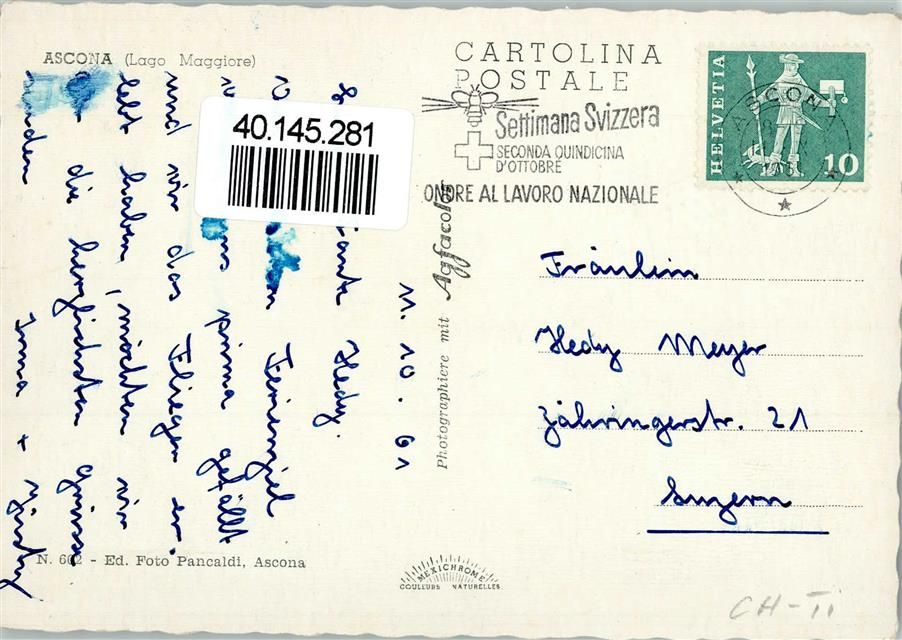 ASCONA (Lago Maggiore)
CARTOLINA
POSTALE
Settimana Svizzera
SECONDA QUINDICINA
D'OTTOBRE
ONORE AL LAVORO NAZIONALE
HELVETIA
10
ASCONA
40.145.281
11.10.61
Tante Hedy.
Ferienziel
uns prima gefällt
und wir das Fliegen er-
lebt haben, möchten wir
die herzlichsten Grüsse
senden
Irma +
Photographiere mit Agfacolor
Fräulein
Hedy Meyer
Zähringerstr. 21
Luzern
N. 602 - Ed. Foto Pancaldi, Ascona
MEXICHROME
COULEURS NATURELLES
CH-Ti